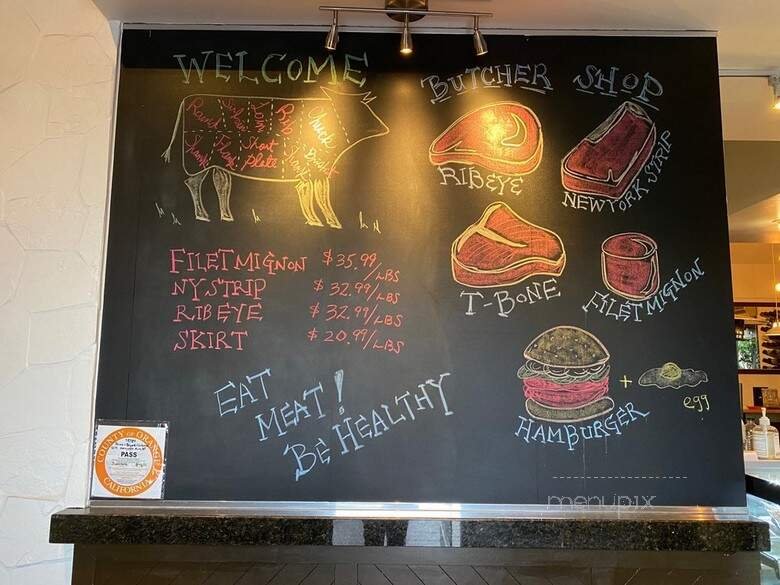 WELCOME
BUTCHER SHOP
Round
Sirloin
Loin
Rib
Chuck
Shank
Flank
Short
Plate
Brisket
RIBEYE
NEW YORK STRIP
T-BONE
FILET MIGNON
FILET MIGNON $35.99/LBS
NY STRIP $32.99/LBS
RIB EYE $32.99/LBS
SKIRT $20.99/LBS
EAT
MEAT!
BE HEALTHY
HAMBURGER
+
egg
COUNTY OF ORANGE
PASS
CALIFORNIA
menupix